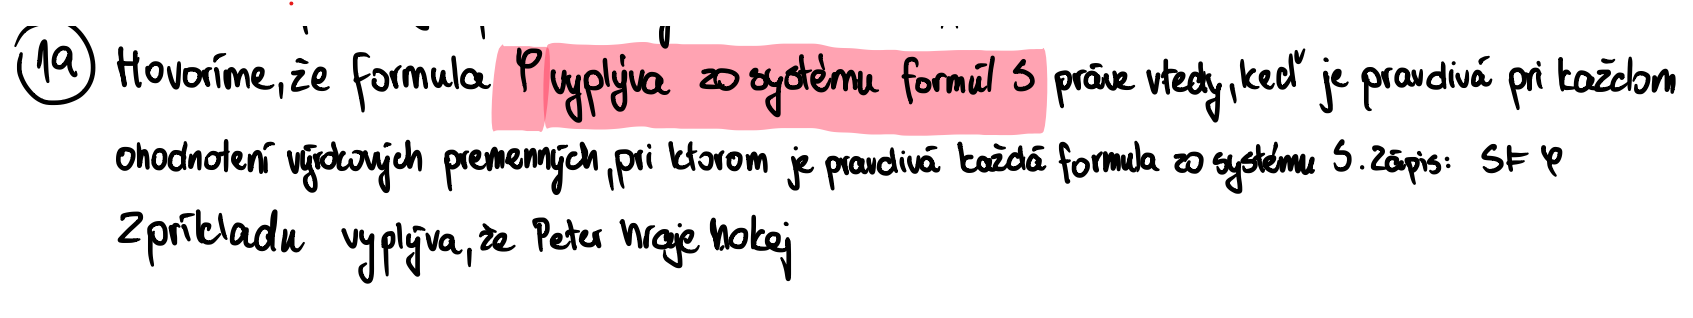 1a Hovoríme, že formula φ vyplýva zo systému formúl S práve vtedy, keď je pravdivá pri každom
ohodnotení výrokových premenných, pri ktorom je pravdivá každá formula zo systému S. Zápis: S ⊨ φ
Z príkladu vyplýva, že Peter hraje hokej